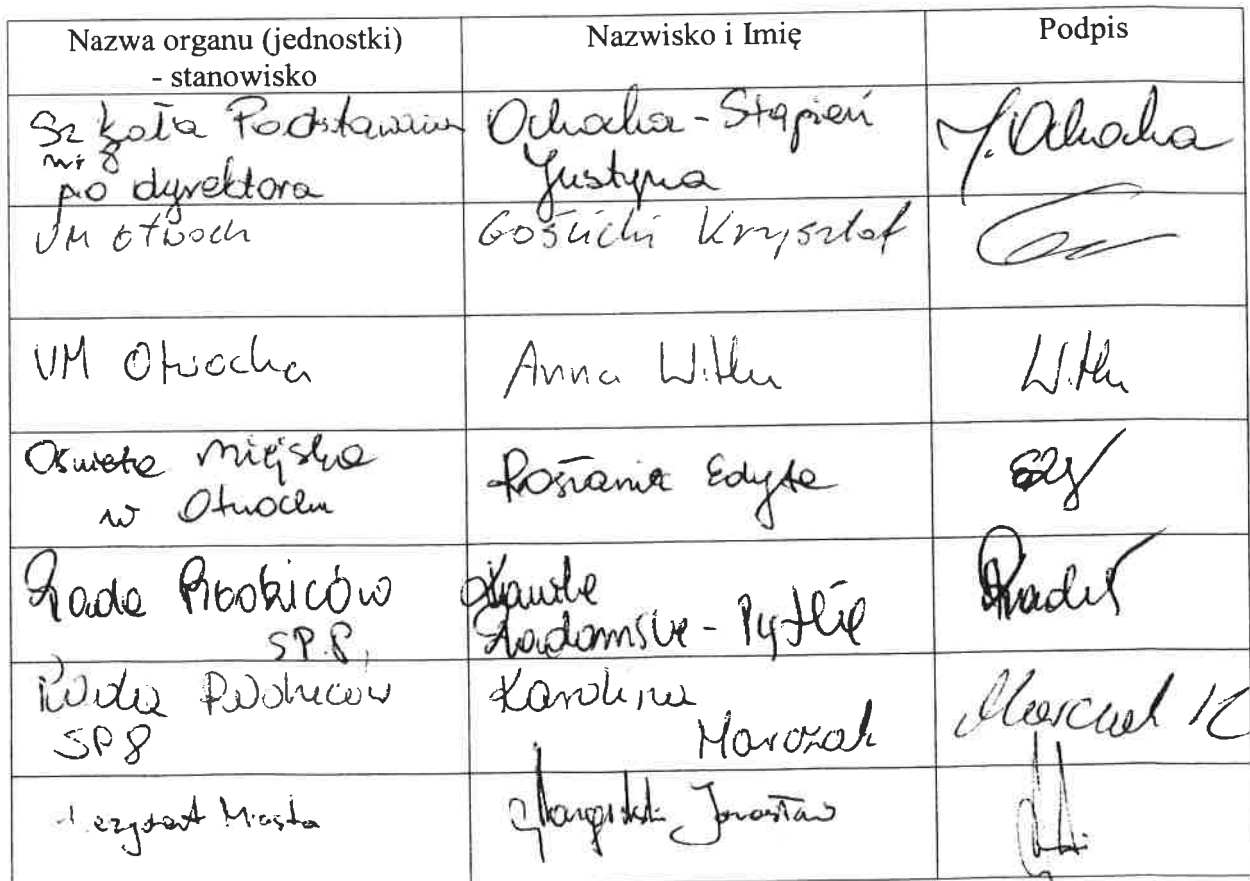 Nazwa organu (jednostki)
- stanowisko
Nazwisko i Imię
Podpis
Szkoła Podstawowa
nr 8
po dyrektora
Ochocka-Stępień
Justyna
J. Ochocka
UM Otwock
Gościcki Krzysztof
UM Otwocka
Anna Witku
Witku
Oświata Miejska
w Otwocku
Rosłaniec Edyta
Rada Rodziców
SP.8,
Kamila
Radomska-Pytlik
Rada Rodziców
SP8
Karolina
Marczak
Marczak K
Prezydent Miasta
Jarosław